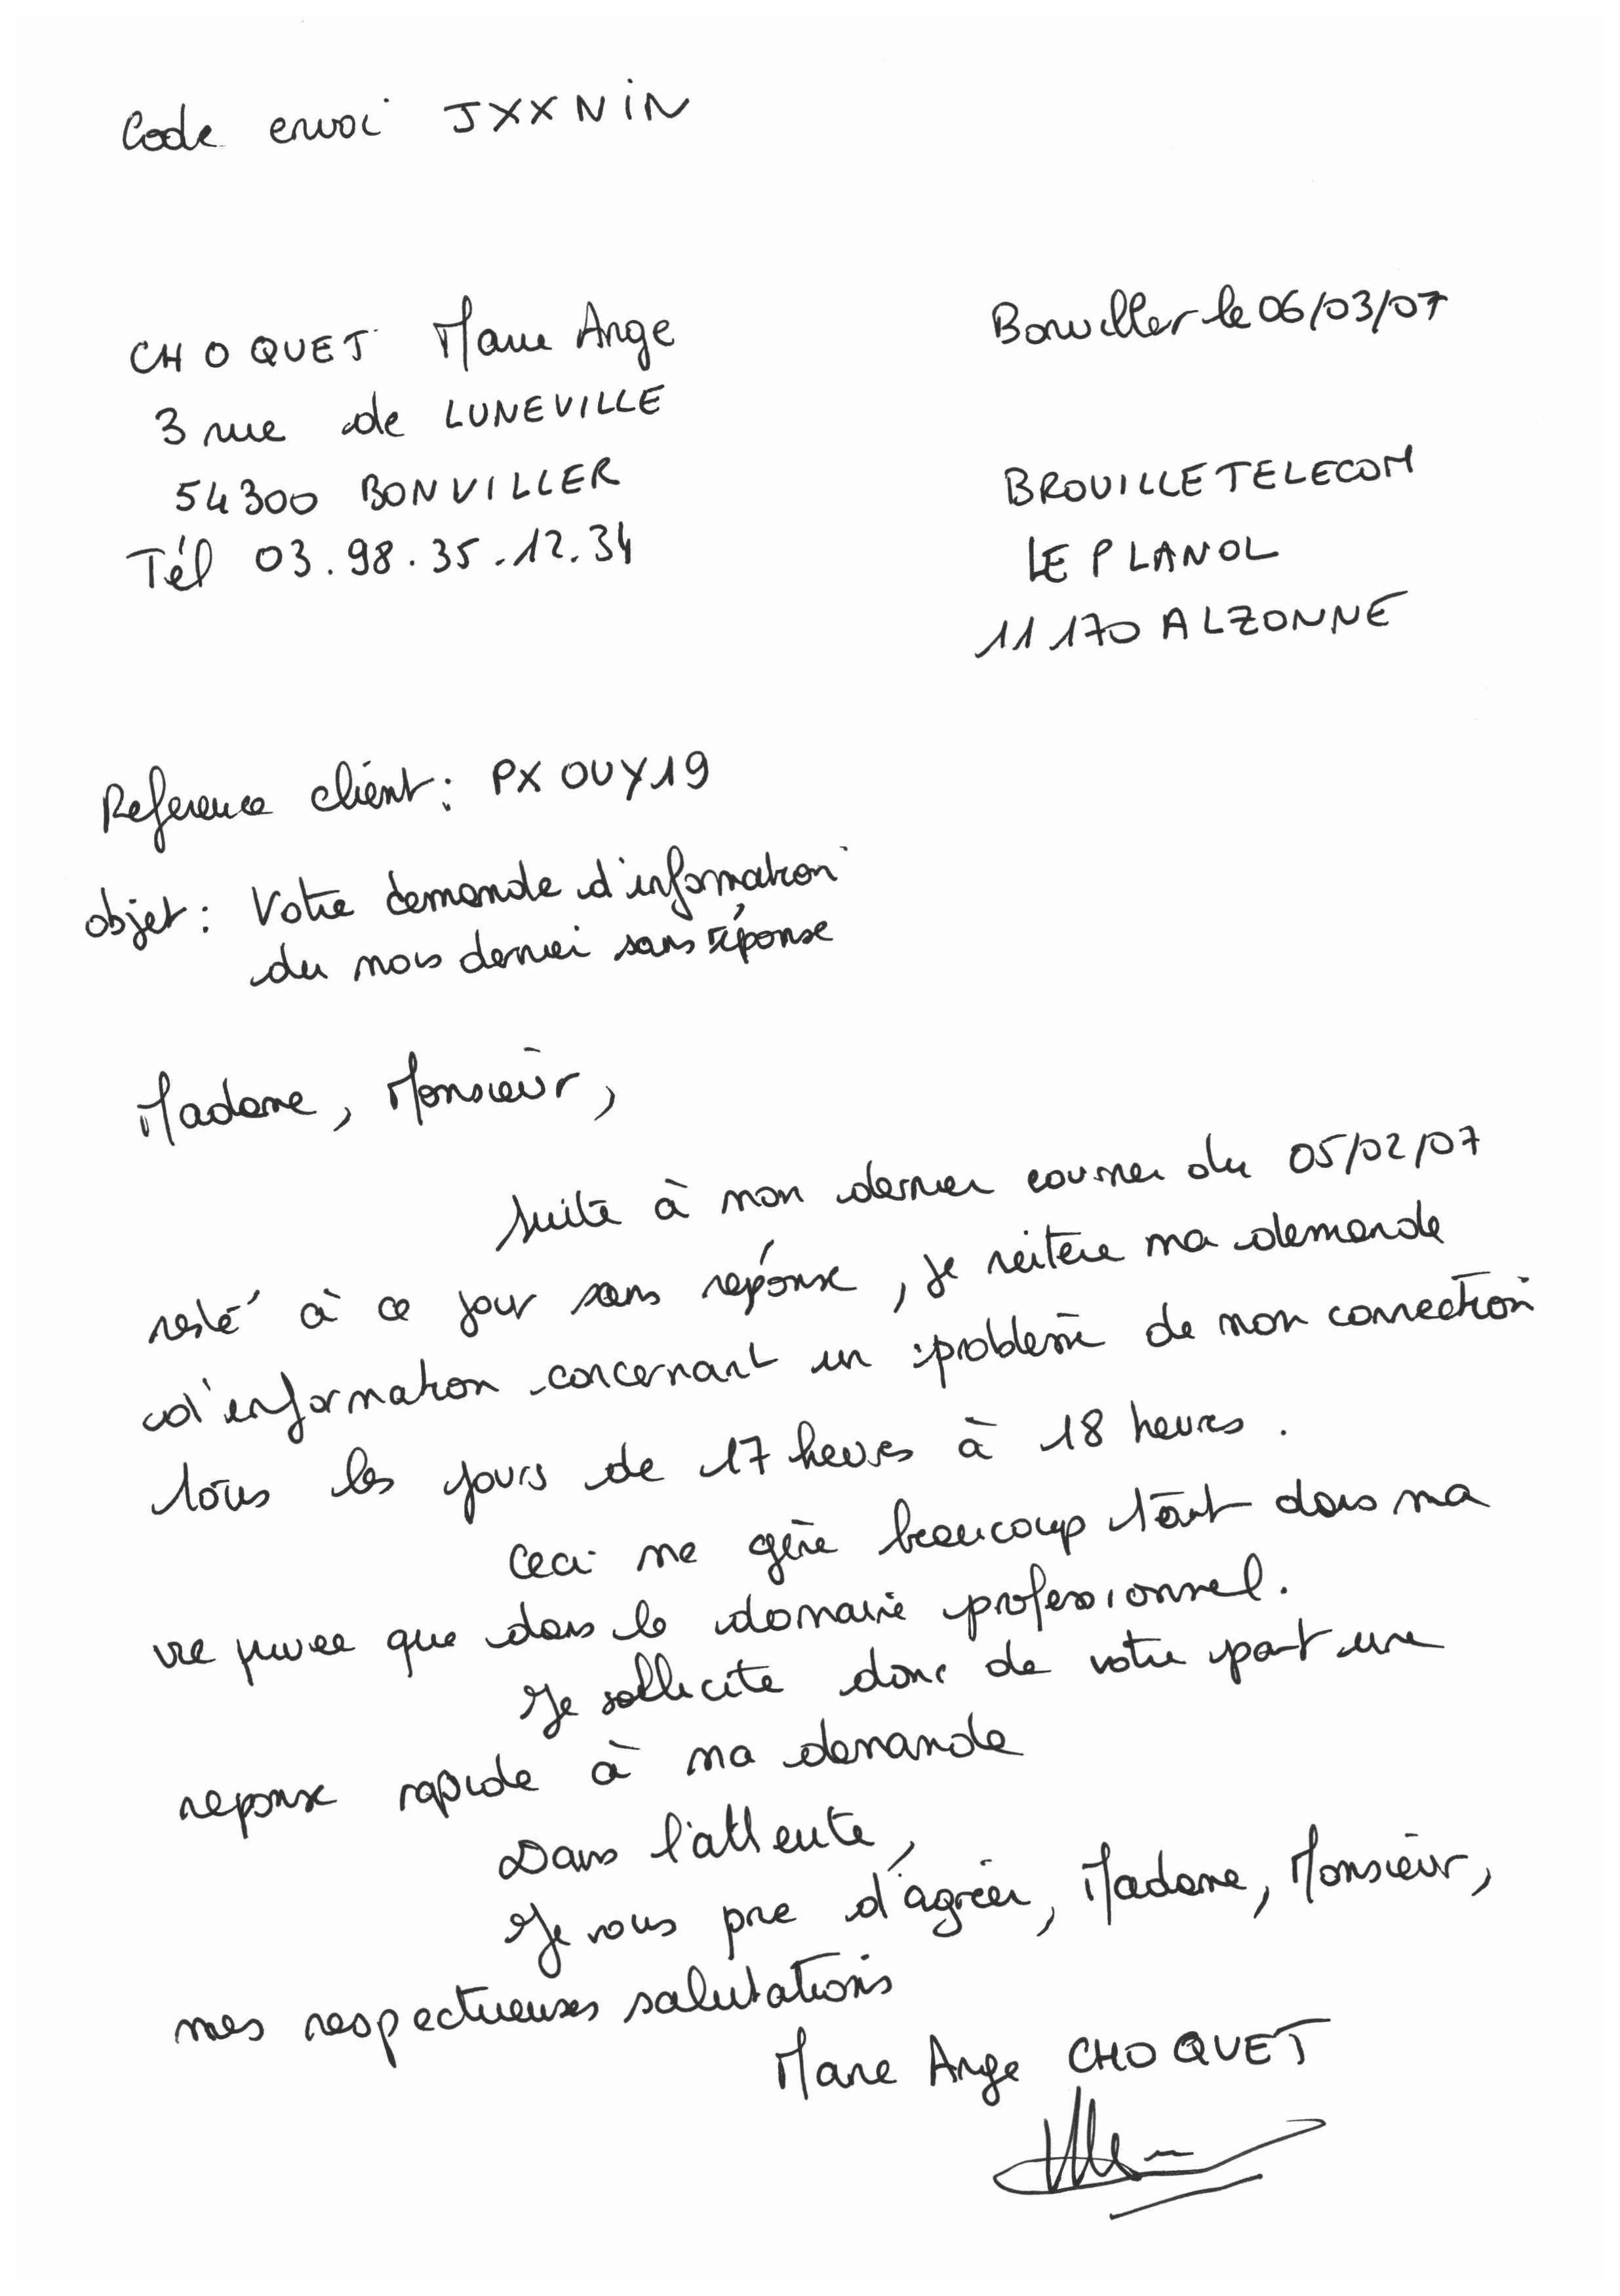 Code envoi JXXNIN
CHOQUET Marie Ange
3 rue de LUNEVILLE
54300 BONVILLER
Tél 03.98.35.12.34
Bonviller le 06/03/07
BROUILLETELECOM
LE PLANOL
11170 ALZONNE
Reference client : PXOUY19
objet : Votre demande d'information
du mois dernier sans réponse
Madame, Monsieur,
Suite à mon dernier courrier du 05/02/07
resté à ce jour sans réponse, je réitère ma demande
d'information concernant un problème de mon connection
tous les jours de 17 heures à 18 heures.
Ceci me gène beaucoup tant dans ma
vie privée que dans le domaine professionnel.
Je sollicite donc de votre part une
reponse rapide à ma demande
Dans l'attente,
Je vous prie d'agréer, Madame, Monsieur,
mes respectueuses salutations
Marie Ange CHOQUET